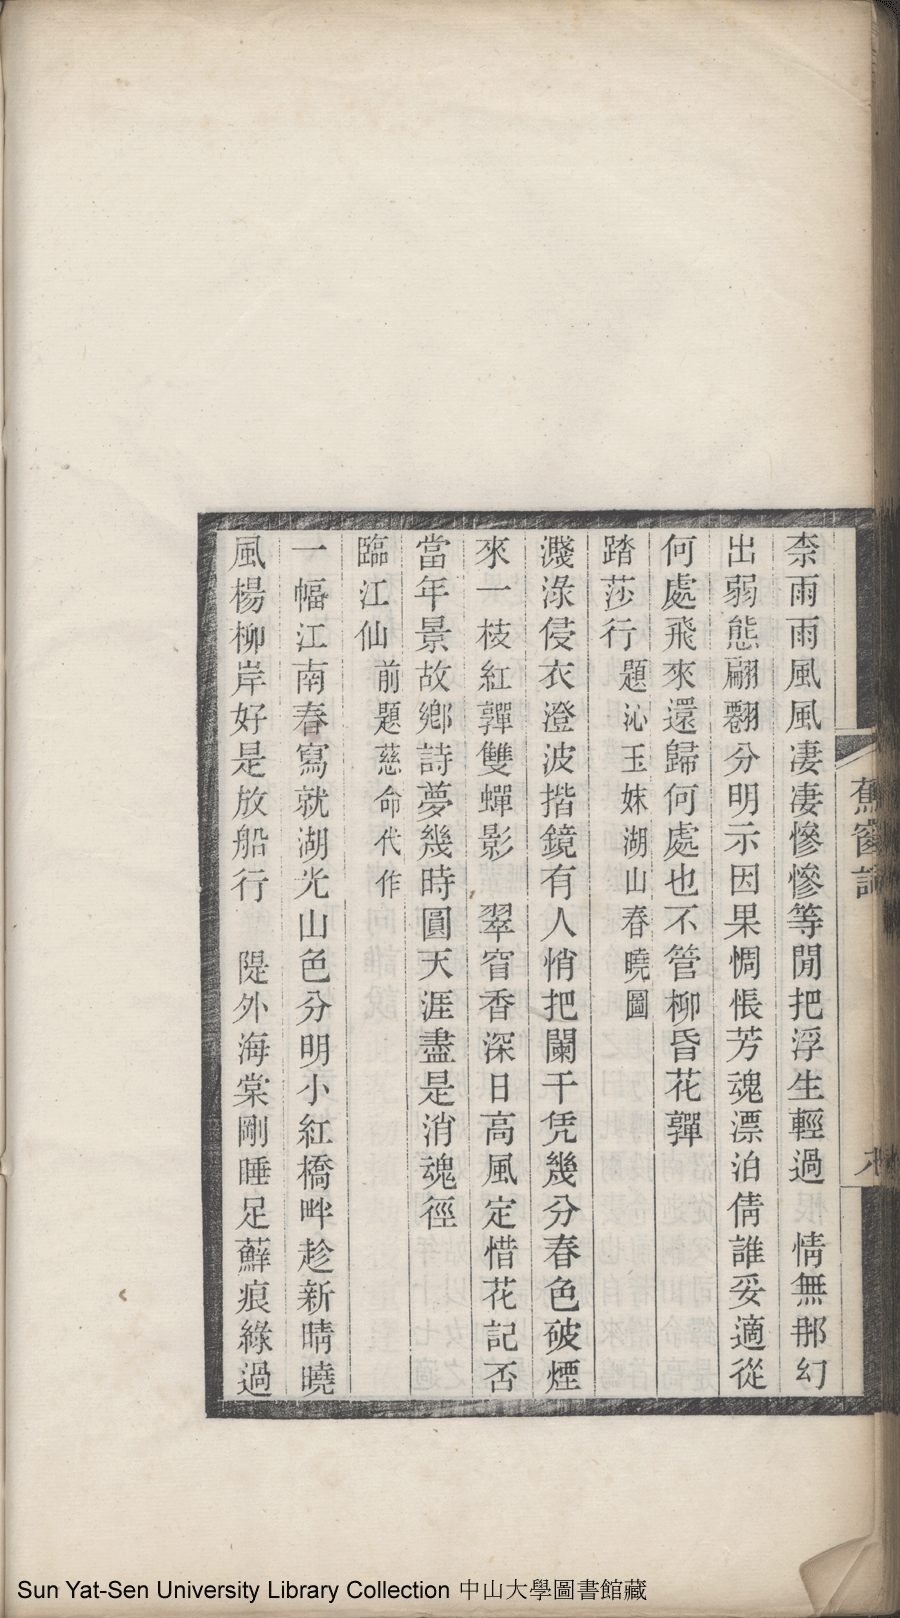 柰雨雨風風凄凄慘慘等閒把浮生輕過　情無那幻
出弱態翩翾分明示因果惆悵芳魂漂泊倩誰妥適從
何處飛來還歸何處也不管柳昏花嚲
踏莎行　題沁玉妹湖山春曉圖
濺淥侵衣澄波揩鏡有人悄把闌干凭幾分春色破煙
來一枝紅嚲雙蟬影　翠窅香深日高風定惜花記否
當年景故鄉詩夢幾時圓天涯盡是消魂徑
臨江仙　前題慈命代作
一幅江南春寫就湖光山色分明小紅橋畔趁新晴曉
風楊柳岸好是放船行　隄外海棠剛睡足蘚痕緣過
窗
Sun Yat-Sen University Library Collection 中山大學圖書館藏